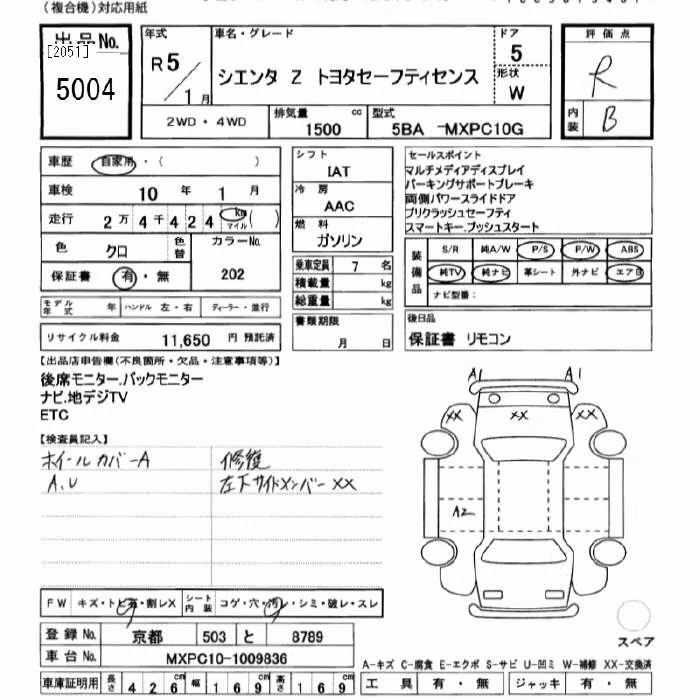 (複合機)対応用紙
出品No.
[2051]
5004
年式
R5/1月
車名・グレード
シエンタ Z トヨタセーフティセンス
ドア
5
形状
W
評価点
R
内装
B
2WD・4WD
排気量 cc
1500
型式
5BA -MXPC10G
車歴 自家用・( )
車検 10年 1月
走行 2万4千424 km マイル ( )
色 クロ 色替
カラーNo.
202
保証書 有・無
モデル年式 年 ハンドル 左・右 ディーラー・並行
リサイクル料金 11,650 円 預託済
シフト
IAT
冷房
AAC
燃料
ガソリン
乗車定員 7 名
積載量 kg
総重量 kg
書類期限
月 日
セールスポイント
マルチメディアディスプレイ
パーキングサポートブレーキ
両側パワースライドドア
プリクラッシュセーフティ
スマートキー.プッシュスタート
装備品
S/R 純A/W P/S P/W ABS
純TV 純ナビ 革シート 外ナビ エアB
ナビ型番:
後日品
保証書 リモコン
【出品店申告欄(不良箇所・欠品・注意事項等)】
後席モニター.バックモニター
ナビ.地デジTV
ETC
【検査員記入】
ホイールカバーA 修復
A,U 左下サイドメンバー XX
A1 A1
XX XX XX
A2
FW キズ・トビ石・割レX シート内装 コゲ・穴・汚レ・シミ・破レ・スレ
登録No. 京都 503 と 8789
車台No. MXPC10-1009836
車庫証明用 長さ 426cm 幅 169cm 高さ 169cm
スペア
A-キズ C-腐食 E-エクボ S-サビ U-凹ミ W-補修 XX-交換済
工具 有・無 ジャッキ 有・無